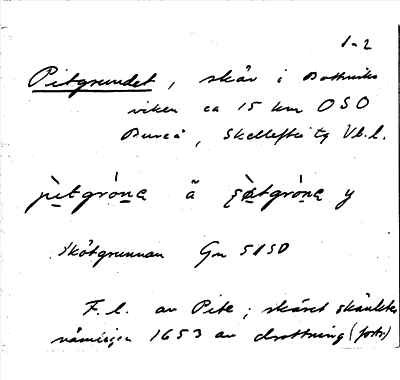 1-2
Pitgrundet, skär i Bottniska
viken ca 15 km OSO
Bureå, Skellefteå tg Vb. l.
pìtgrò̱na ä̃ sø̀tgrò̱na y
Skötgrunnan Gn 5150
F. l. av Pite; skäret skänktes
nämligen 1653 av drottning (forts)